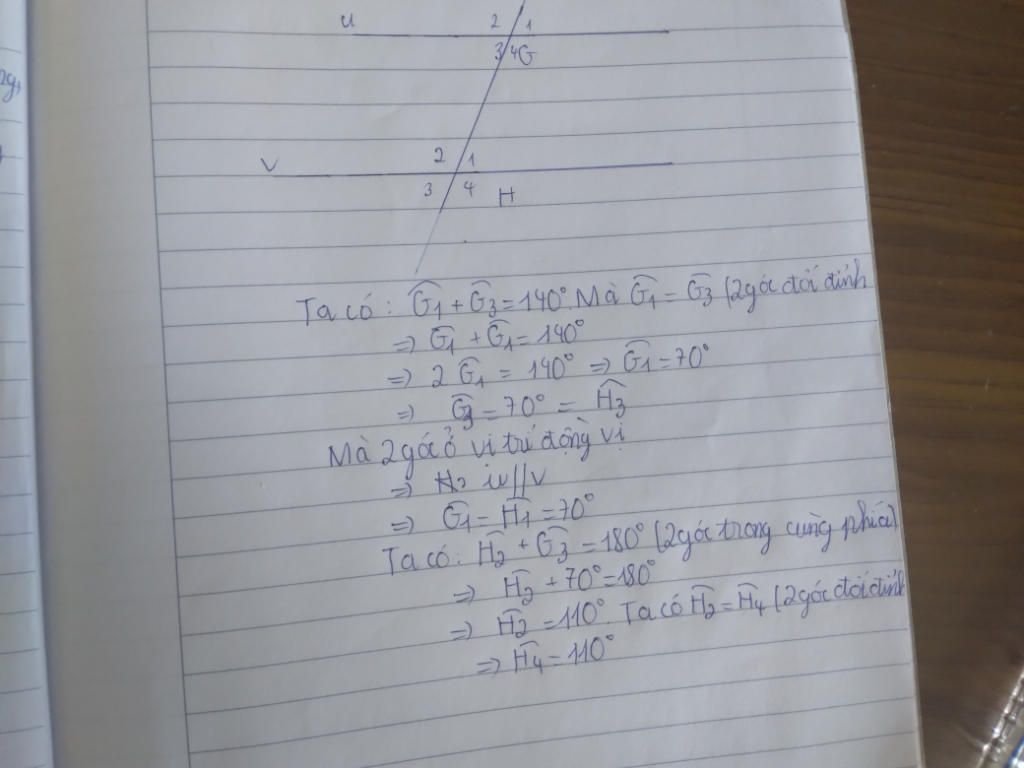 u 2 1
3 4 G
v 2 1
3 4 H
Ta có: Ĝ1 + Ĝ3 = 140°. Mà Ĝ1 = Ĝ3 (2 góc đối đỉnh
=> Ĝ1 + Ĝ1 = 140°
=> 2 Ĝ1 = 140° => Ĝ1 = 70°
=> Ĝ3 = 70° = Ĥ3
Mà 2 góc ở vị trí đồng vị
=> u//v
=> Ĝ1 = Ĥ1 = 70°
Ta có: Ĥ2 + Ĝ3 = 180° (2 góc trong cùng phía)
=> Ĥ2 + 70° = 180°
=> Ĥ2 = 110°. Ta có Ĥ2 = Ĥ4 (2 góc đối đỉnh
=> Ĥ4 = 110°